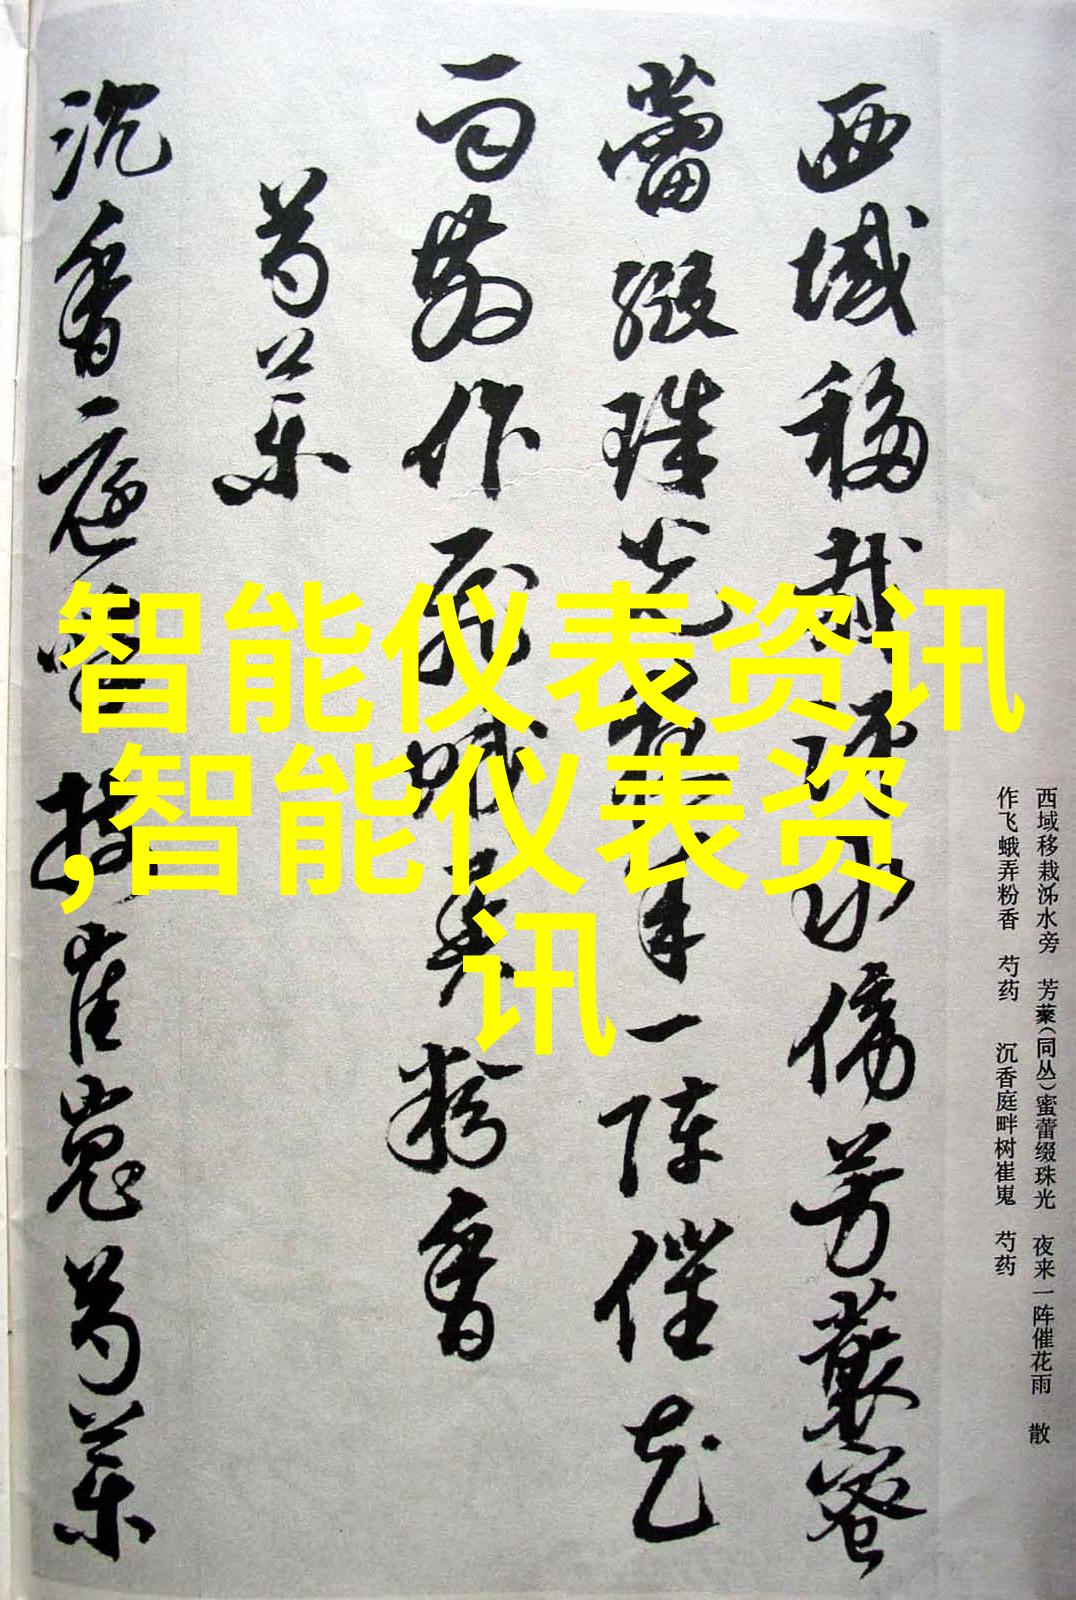 西域移栽泲水傍芳藂蜜
蕾缀珠光夜来一阵催花
雨散作飞蛾弄粉香
芍药
沉香庭畔树崔嵬芍药
智能仪表资讯
,智能仪表资
讯
西域移栽泲水旁　芳藂(同丛)蜜蕾缀珠光　夜来一阵催花雨　散
作飞蛾弄粉香　芍药　沉香庭畔树崔嵬　芍药